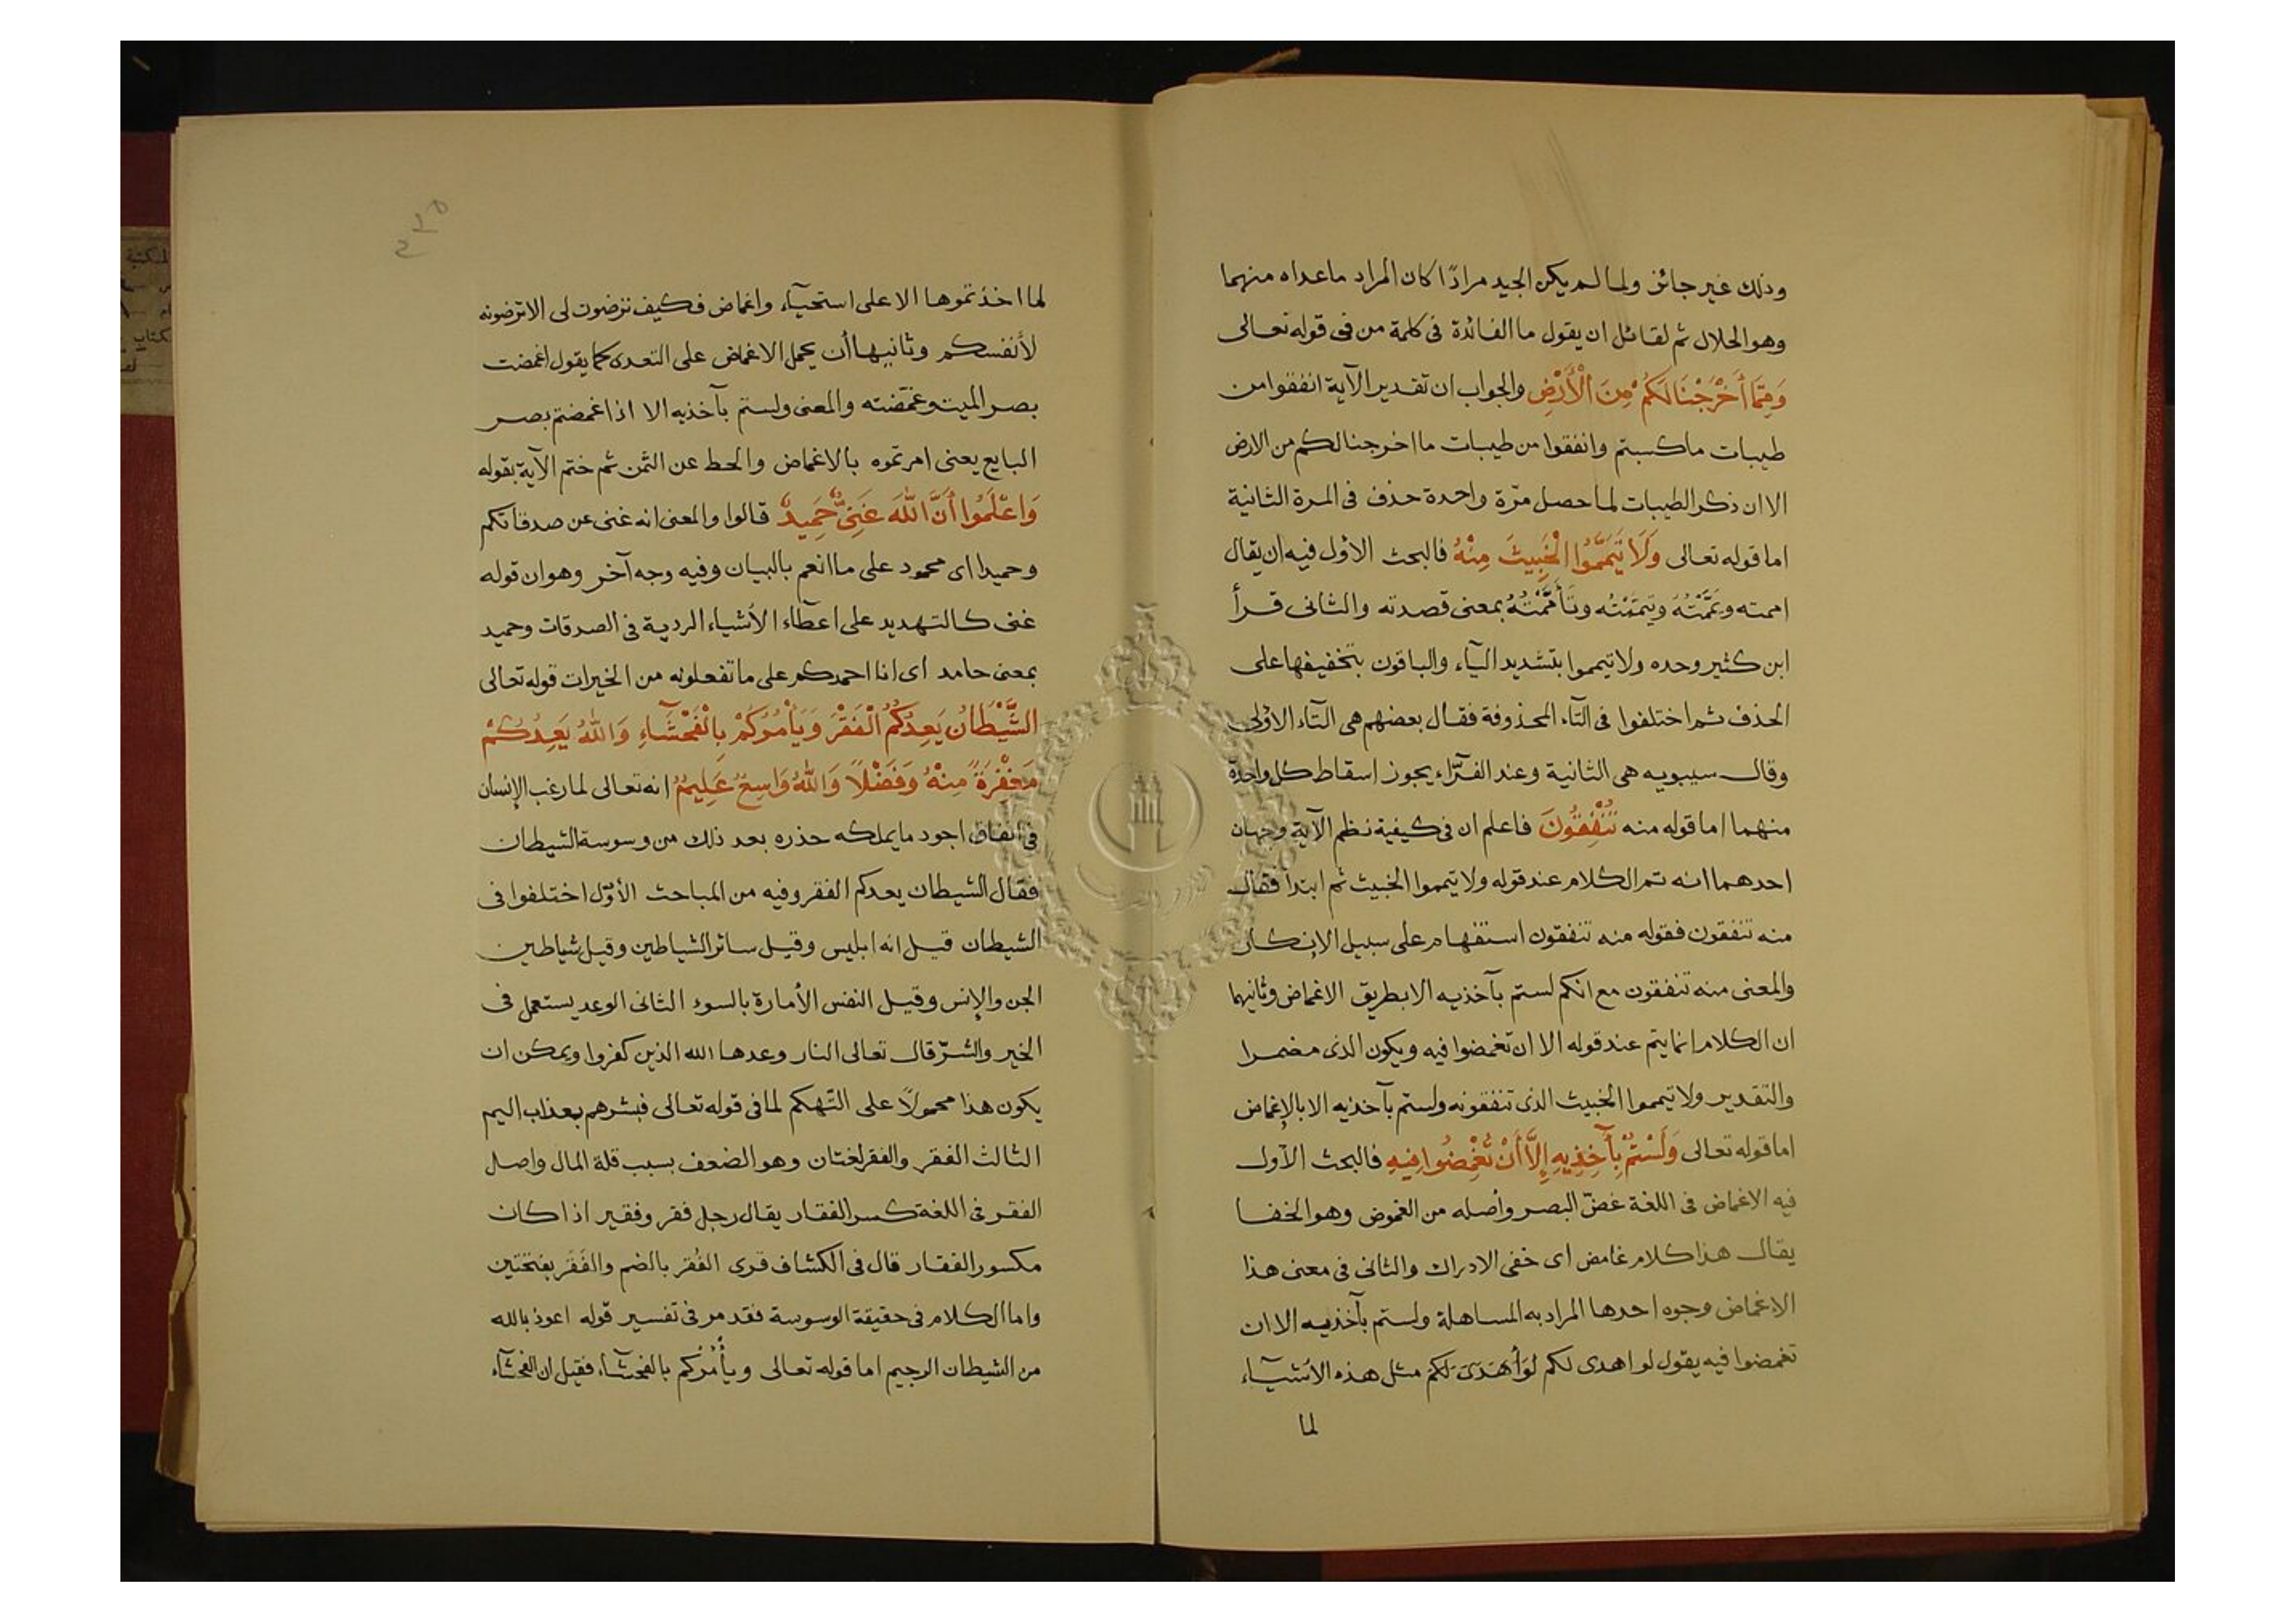 وذلك غير جائز ولما لم يكن الجيد مرادًا كان المراد ماعداه منهما
وهو الحلال ثم لقائل ان يقول ما الفائدة فى كلمة من فى قوله تعالى
وَمِمَّا أَخْرَجْنَا لَكُمْ مِنَ الْأَرْضِ والجواب ان تقدير الآية انفقوا من
طيبات ماكسبتم وانفقوا من طيبات ما اخرجنا لكم من الارض
الا ان ذكر الطيبات لما حصل مرّة واحدة حذف فى المرة الثانية
اما قوله تعالى وَلَا تَيَمَّمُوا الْخَبِيثَ مِنْهُ فالبحث الاول فيه ان يقال
اممته ويَمَّمْتُهُ وتيممْتُه وتَأَمَّمْتُهُ بمعنى قصدته والثانى قرأ
ابن كثير وحده ولا تيمموا بتشديد التآء والباقون بتخفيفها على
الحذف ثم اختلفوا فى التآء المحذوفة فقال بعضهم هى التآء الاولى
وقال سيبويه هى الثانية وعند الفرّاء يجوز اسقاط كل واحدة
منهما اما قوله منه تُنْفِقُونَ فاعلم ان فى كيفية نظم الآية وجهان
احدهما انه تم الكلام عند قوله ولا تيمموا الخبيث ثم ابتدأ فقال
منه تنفقون فقوله منه تنفقون استفهام على سبيل الإنكار
والمعنى منه تنفقون مع انكم لستم بآخذيه الا بطريق الاغماض وثانيهما
ان الكلام انما يتم عند قوله الا ان تغمضوا فيه ويكون الذى مضمرا
والتقدير ولا تيمموا الخبيث الذى تنفقونه ولستم بآخذيه الا بالإغماض
اما قوله تعالى وَلَسْتُمْ بِآخِذِيهِ إِلَّا أَنْ تُغْمِضُوا فِيهِ فالبحث الأول
فيه الاغماض فى اللغة غضّ البصر وأصله من الغموض وهو الخفا
يقال هذا كلام غامض اى خفى الادراك والثانى فى معنى هذا
الاغماض وجوه احدها المراد به المساهلة ولستم بآخذيه الا ان
تغمضوا فيه يقول لو اهدى لكم لَوْ أَهْدَى لَكُمْ مثل هذه الأشيآء
لما
لما اخذتموها الا على استحيآء واغماض فكيف ترضون لى الا ترضونه
لأنفسكم وثانيها أن يحمل الاغماض على التعدى كما يقول اغمضت
بصر الميت وغمّضته والمعنى ولستم بآخذيه الا اذا اغمضتم بصر
البايع يعنى امرتموه بالاغماض والحط عن الثمن ثم ختم الآية بقوله
وَاعْلَمُوا أَنَّ اللَّهَ غَنِىٌّ حَمِيدٌ قالوا والمعنى انه غنى عن صدقاتكم
وحميدا اى محمود على ما انعم بالبيان وفيه وجه آخر وهو ان قوله
غنى كالتهديد على اعطآء الأشياء الردية فى الصدقات وحميد
بمعنى حامد اى انا احمدكم على ما تفعلونه من الخيرات قوله تعالى
الشَّيْطَانُ يَعِدُكُمُ الْفَقْرَ وَيَأْمُرُكُمْ بِالْفَحْشَآءِ وَاللَّهُ يَعِدُكُمْ
مَغْفِرَةً مِنْهُ وَفَضْلًا وَاللَّهُ وَاسِعٌ عَلِيمٌ انه تعالى لما رغب الإنسان
فى انفاق اجود ما يملكه حذره بعد ذلك من وسوسة الشيطان
فقال الشيطان يعدكم الفقر وفيه من المباحث الأوّل اختلفوا فى
الشيطان قيل انه ابليس وقيل سائر الشياطين وقيل شياطين
الجن والإنس وقيل النفس الأمارة بالسوء الثانى الوعد يستعمل فى
الخير والشرّ قال تعالى النار وعدها الله الذين كفروا ويمكن ان
يكون هذا محمولًا على التهكم لما فى قوله تعالى فبشرهم بعذاب اليم
الثالث الفقر والفقر لغتان وهو الضعف بسبب قلة المال واصل
الفقر فى اللغة كسر الفقار يقال رجل فقر وفقير اذا كان
مكسور الفقار قال فى الكشاف قرى الفُقر بالضم والفَقَر بفتحتين
واما الكلام فى حقيقة الوسوسة فقد مر فى تفسير قوله اعوذ بالله
من الشيطان الرجيم اما قوله تعالى ويأْمُرُكم بالفحشآء فقيل ان الفحشآء